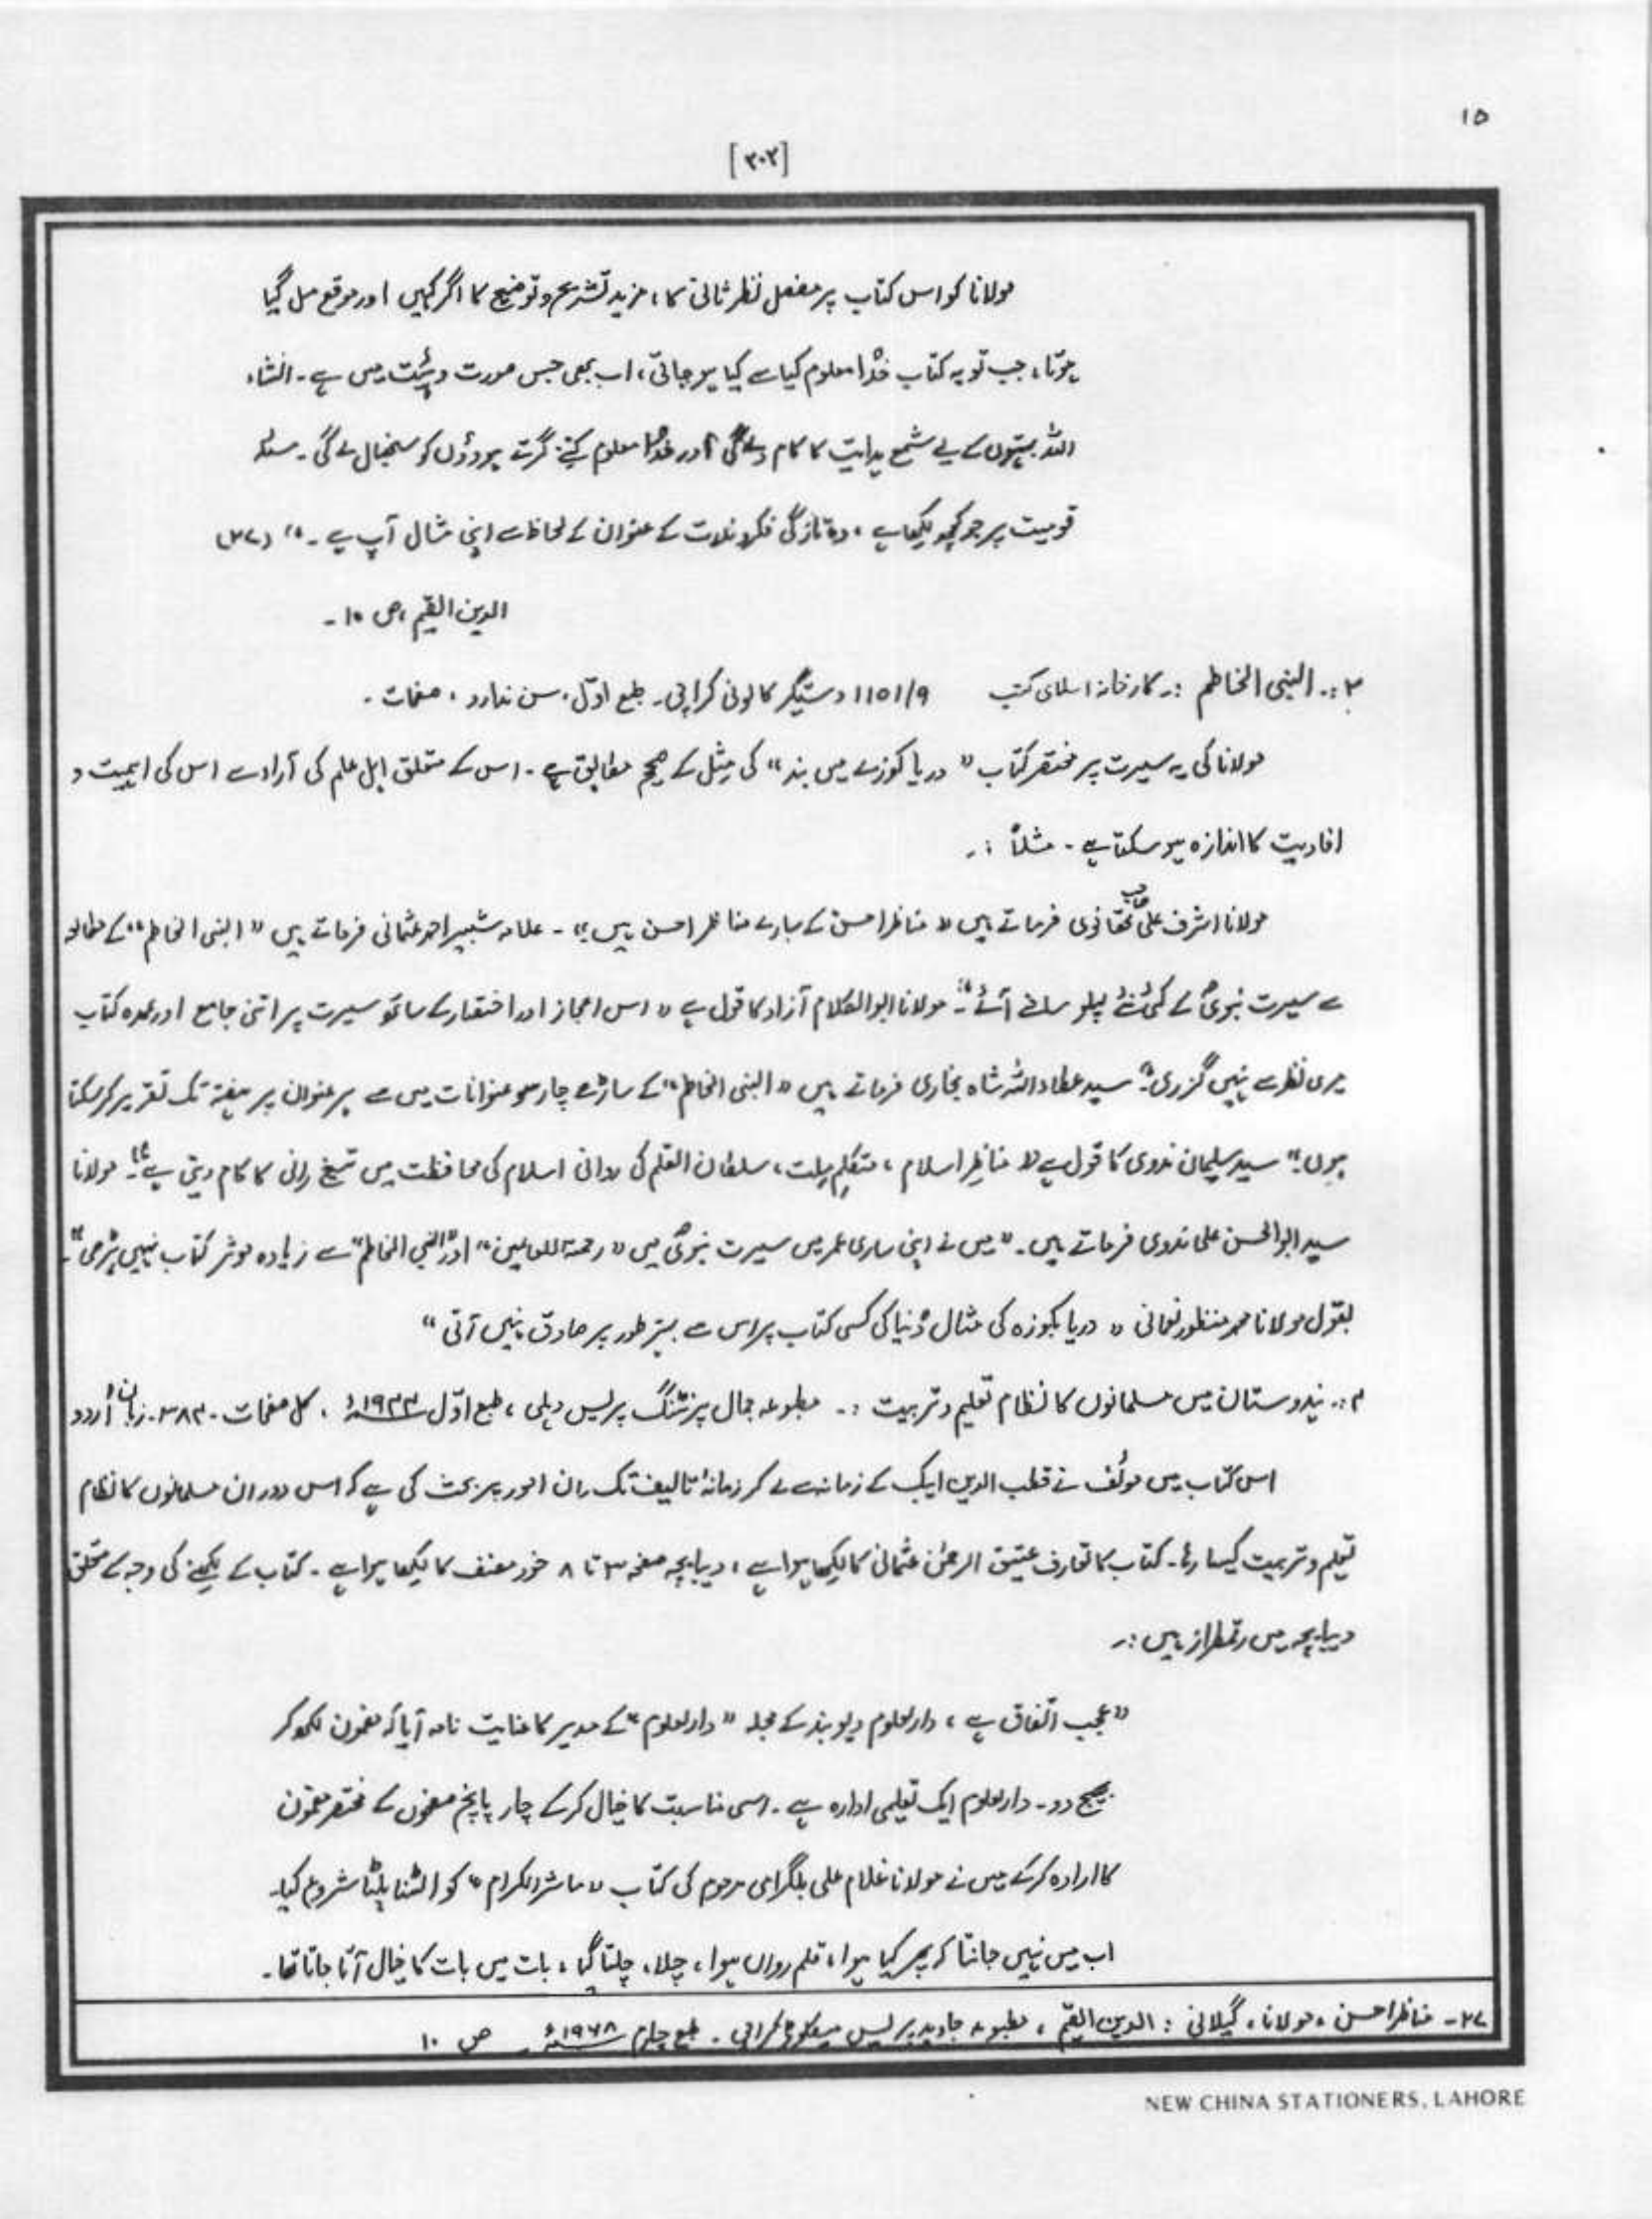 ۱۵
[۳۰۲]
مولانا کو اس کتاب پر مفصل نظر ثانی کا، مزید تشریح و توضیح کا اگر کہیں اور موقع مل گیا
ہوتا، جب تو یہ کتاب خدا معلوم کیا سے کیا ہو جاتی، اب بھی جس صورت و ہیئت میں ہے۔ انشاء
اللہ بہتوں کے لیے شمع ہدایت کا کام دے گی اور خدا معلوم کتنے گرتے ہوؤں کو سنبھال لے گی۔ مسئلہ
قومیت پر جو کچھ لکھا ہے، وہ تازگی فکر و ندرت کے عنوان کے لحاظ سے اپنی مثال آپ ہے۔" (۲۷)
الدین القیم، ص ۱۰۔
۳:۔ النبی الخاطم :۔ کارخانہ اسلامی کتب 1151/9 دستگیر کالونی کراچی۔ طبع اوّل، سن ندارد، صفحات۔
مولانا کی یہ سیرت پر مختصر کتاب "دریا کوزے میں بند" کی مِثل کے صحیح مطابق ہے۔ اس کے متعلق اہل علم کی آراء سے اس کی اہمیت و
افادیت کا اندازہ ہو سکتا ہے۔ مثلاً :۔
مولانا اشرف علی صاحب تھانوی فرماتے ہیں "مناظر احسن کے سارے مناظر احسن ہیں"۔ علامہ شبیر احمد عثمانی فرماتے ہیں "النبی الخاطم" کے مطالعہ
سے سیرت نبویؐ کے کئی نئے پہلو سامنے آئے"۔ مولانا ابوالکلام آزاد کا قول ہے "اس اعجاز اور اختصار کے ساتھ سیرت پر اتنی جامع اور عمدہ کتاب
میری نظر سے نہیں گزری"۔ سید عطاء اللہ شاہ بخاری فرماتے ہیں "النبی الخاطم" کے ساڑھے چار سو عنوانات میں سے ہر عنوان پر ہفتہ تک تقریر کر سکتا
ہوں"۔ سید سلیمان ندوی کا قول ہے "مناظِر اسلام، متکلِم مِلت، سلطان القلم کی روانی اسلام کی محافظت میں تیغ رانی کا کام دیتی ہے"۔ مولانا
سید ابوالحسن علی ندوی فرماتے ہیں۔ "میں نے اپنی ساری عمر میں سیرت نبویؐ میں "رحمۃ للعالمین" اور "النبی الخاطم" سے زیادہ موثر کتاب نہیں پڑھی"۔
بقول مولانا محمد منظور نعمانی "دریا بکوزہ کی مثال دُنیا کی کسی کتاب پر اس سے بہتر طور پر صادق نہیں آتی"
۴:۔ ہندوستان میں مسلمانوں کا نظام تعلیم و تربیت :۔ مطبوعہ جمال پرنٹنگ پریس دہلی، طبع اوّل ۱۹۴۴ء، کل صفحات۔ ۳۸۴۔ زبان اُردو
اس کتاب میں موئف نے قطب الدین ایبک کے زمانہ سے لے کر زمانۂ تالیف تک ان امور پر بحث کی ہے کہ اس دوران مسلمانوں کا نظام
تعلیم و تربیت کیسا رہا۔ کتاب کا تعارف عتیق الرحمٰن عثمانی کا لکھا ہوا ہے، دیباچہ صفحہ ۳ تا ۸ خود مصنف کا لکھا ہوا ہے۔ کتاب کے لکھنے کی وجہ کے متعلق
دیباچہ میں رقمطراز ہیں :۔
"عجب اتّفاق ہے، دارالعلوم دیوبند کے مجلہ "دارالعلوم" کے مدیر کا عنایت نامہ آیا کہ مضمون لکھ کر
بھیج دو۔ دارالعلوم ایک تعلیمی ادارہ ہے۔ اسی مناسبت کا خیال کر کے چار پانچ صفحوں کے مختصر مضمون
کا ارادہ کر کے میں نے مولانا غلام علی بلگرامی مرحوم کی کتاب "ماثر الکرام" کو الٹنا پلٹنا شروع کیا۔
اب میں نہیں جانتا کہ پھر کیا ہوا، قلم رواں ہوا، چلا، چلتا گیا، بات میں بات کا خیال آتا جاتا تھا۔
۲۷۔ مناظر احسن، مولانا، گیلانی : الدین القیّم، مطبوعہ جاوید پریس میکلوڈ کراچی۔ طبع چہارم ۱۹۶۸ء۔ ص ۱۰
NEW CHINA STATIONERS, LAHORE